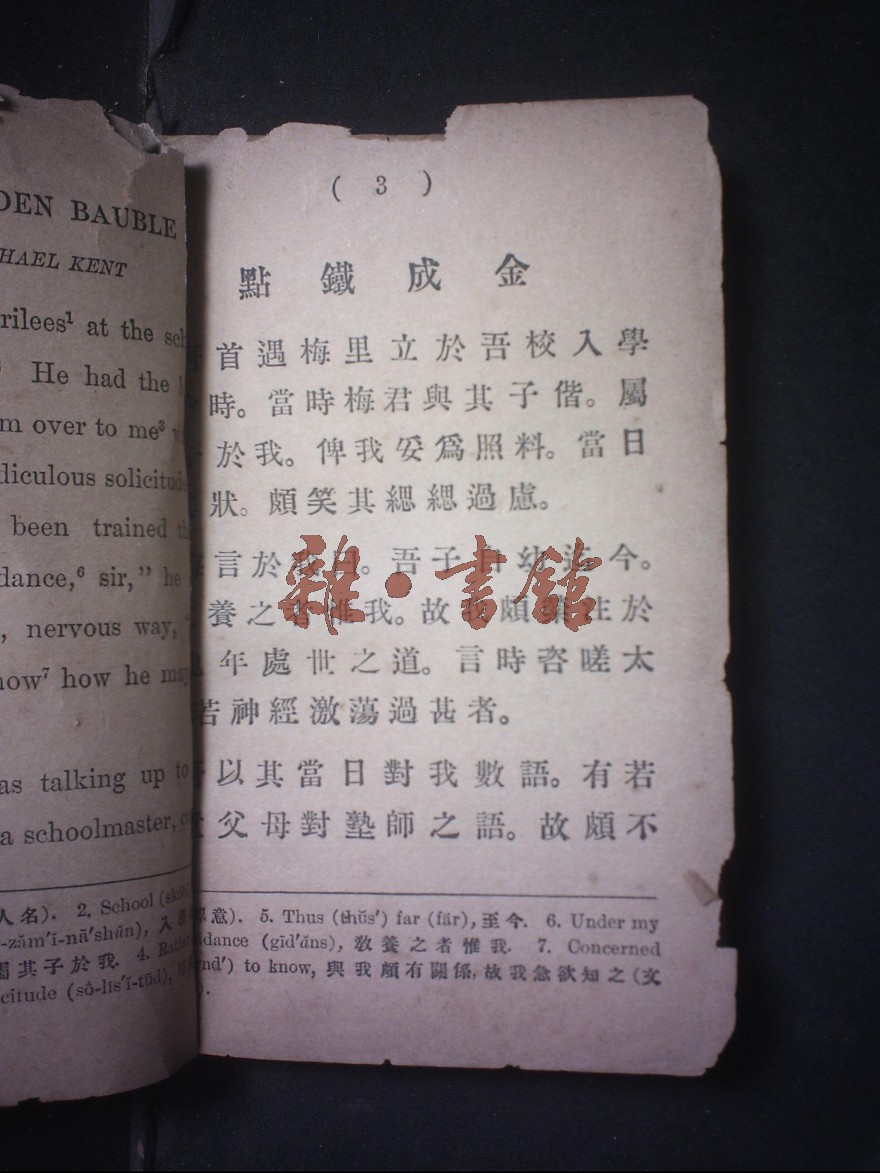 DEN BAUBLE
HAEL KENT
rilees¹ at the sch
He had the
m over to me³ w
diculous solicitude
been trained th
dance,⁶ sir," he
, nervous way, "
now⁷ how he may
as talking up to
a schoolmaster, c
人名). 2. School (skōōl
-zăm'ĭ-nā'shŭn), 入學
屬其子於我. 4. Rather
citude (sŏ-lĭs'ĭ-tūd),
( 3 )
點鐵成金
首遇梅里立於吾校入學
時。當時梅君與其子偕。屬
於我。俾我妥爲照料。當日
狀。頗笑其緦緦過慮。
言於我曰。吾子自幼迄今。
養之者惟我。故我頗業往於
年處世之道。言時咨嗟太
若神經激蕩過甚者。
以其當日對我數語。有若
父母對塾師之語。故頗不
意). 5. Thus (thŭs') far (fär), 至今. 6. Under my
idance (gīd'ăns), 敎養之者惟我. 7. Concerned
nd') to know, 與我頗有關係, 故我急欲知之 (文
).
雜·書館